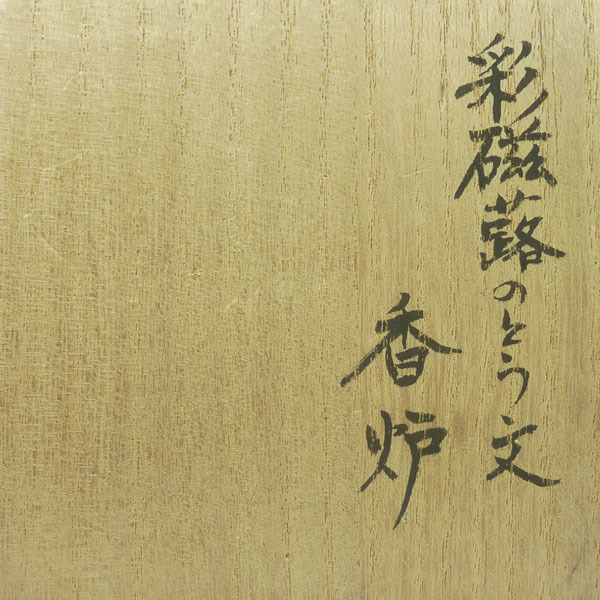 彩磁蕗のとう文
香炉